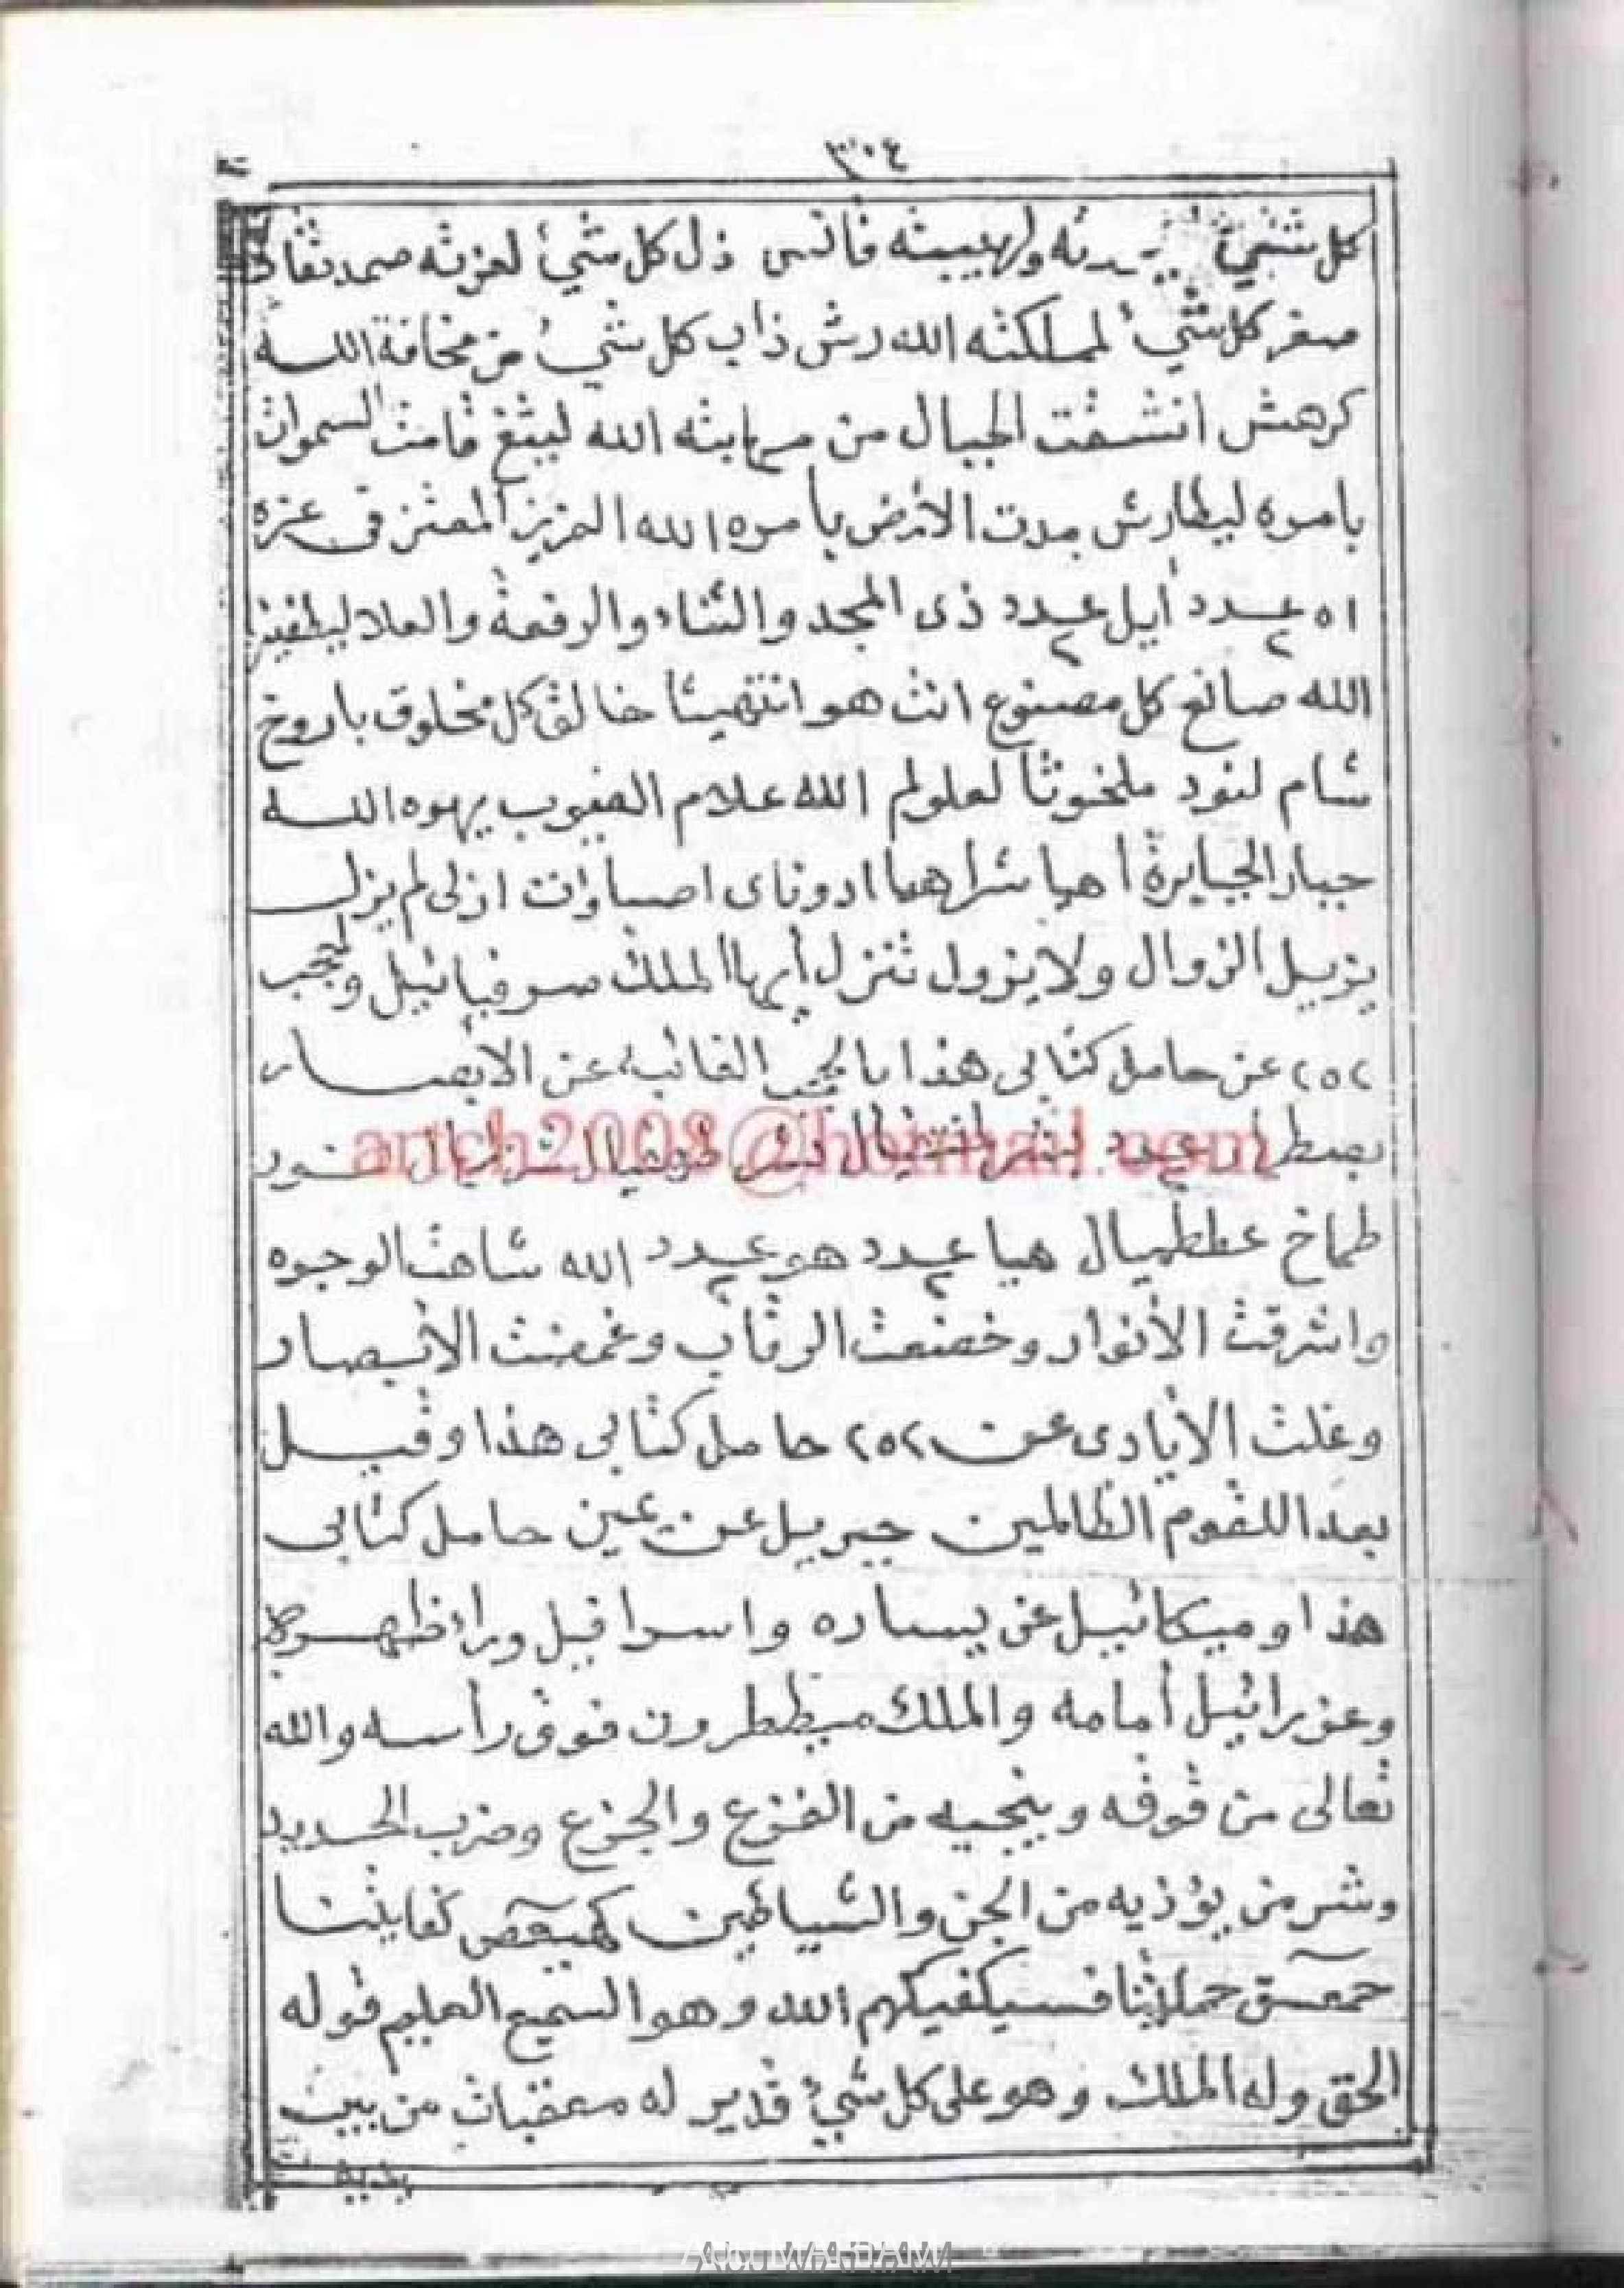 ٣٠٤
كل شيئ ولهيبته فانس ذل كل شيئ لعزته صمد تفالى
صغر كل شيئ لمملكته الله رش ذاب كل شيئ من مخافة الله
كرهش انشقت الجبال من مهابته الله ليثغ قامت السموات
بامره ليطارش مدت الأرض بأمره الله العزيز المعتز في عزه
اه عدد ٢ أيل عدد ٢ ذى المجد والثناء والرفعة والعلا ليطفيز
الله صانع كل مصنوع انت هو انتهيثا خالق كل مخلوق باروخ
شام لنود ملخوثا لعولم الله علام الغيوب يهوه الله
جبار الجبابرة أهيا شراهيا ادوناى اصباؤت ازلى لم يزل
يزيل الزوال ولا يزول تنزل أيها الملك صرفيائيل وتحجب
٢٥٢ عن حامل كتابى هذا بالحجب الغائبه عن الأبصار
artch2008@hotmail.com
طماخ عططميال هيا عدد ٢ هو عدد ٢ الله شاهت الوجوه
واشرقت الأنوار وخضعت الرقاب وغمضت الأبصار
وغلت الأيادى عن ٢٥٢ حامل كتابى هذا وقيل
بعدا للقوم الظالمين جبريل عن يمين حامل كتابى
هذا وميكائيل عن يساره واسرافيل وراء ظهره
وعزرائيل أمامه والملك ميططرون فوق رأسه والله
تعالى من فوقه وينجيه من الفزع والجزع وضرب الحديد
وشر من يؤذيه من الجن والشياطين كهيعص كفايتنا
حمعسق حمايتنا فسيكفيكهم الله وهو السميع العليم قوله
الحق وله الملك وهو على كل شيئ قدير له معقبات من بين
يديه